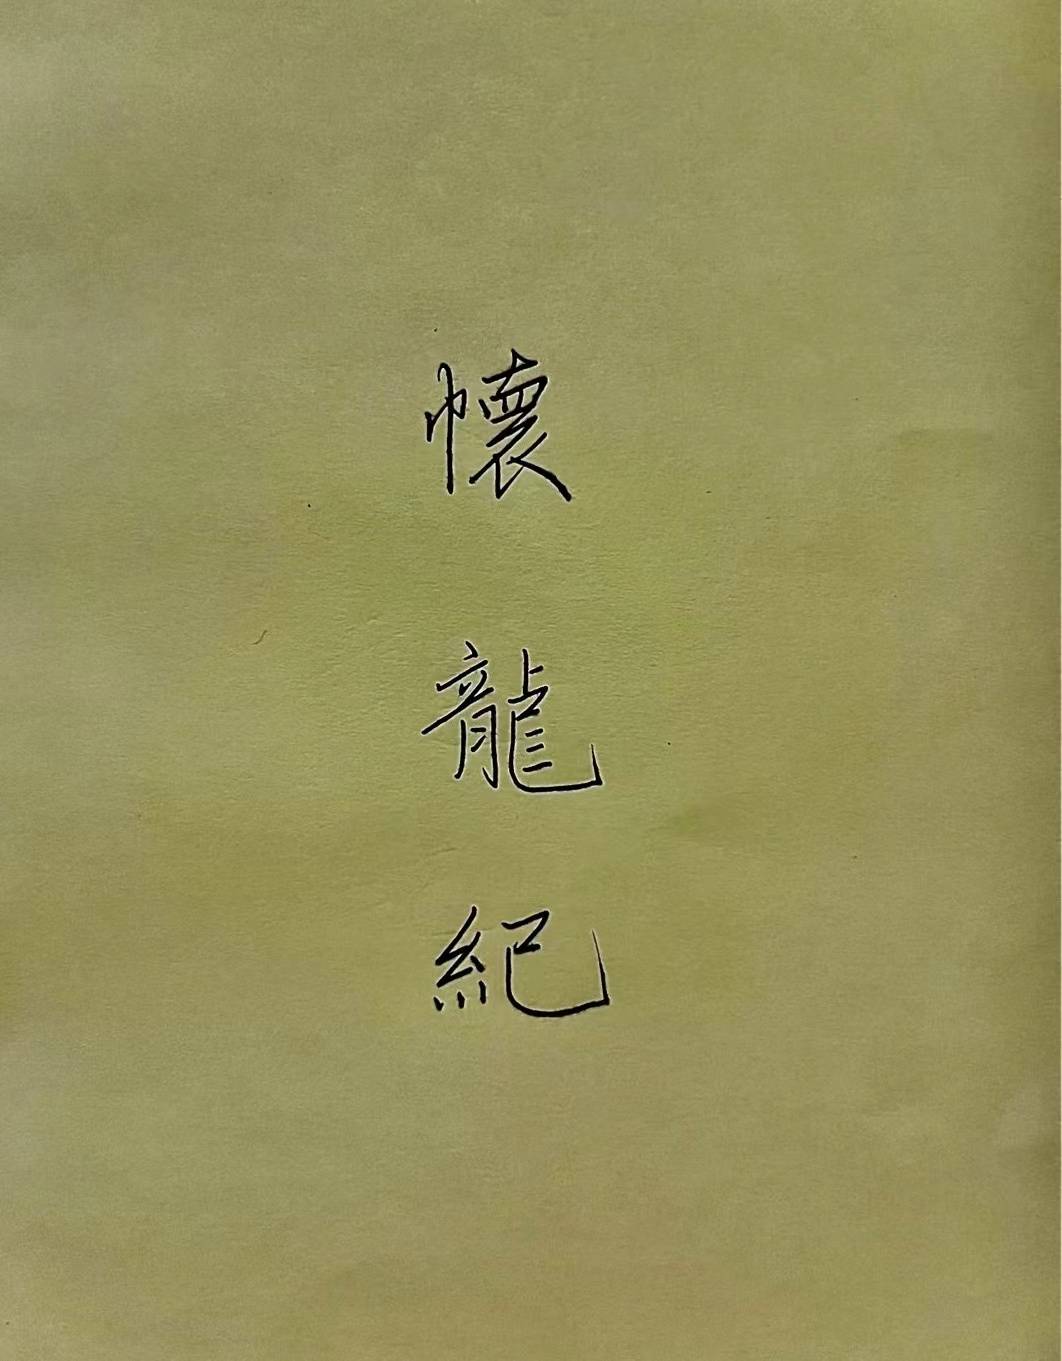 懷龍紀